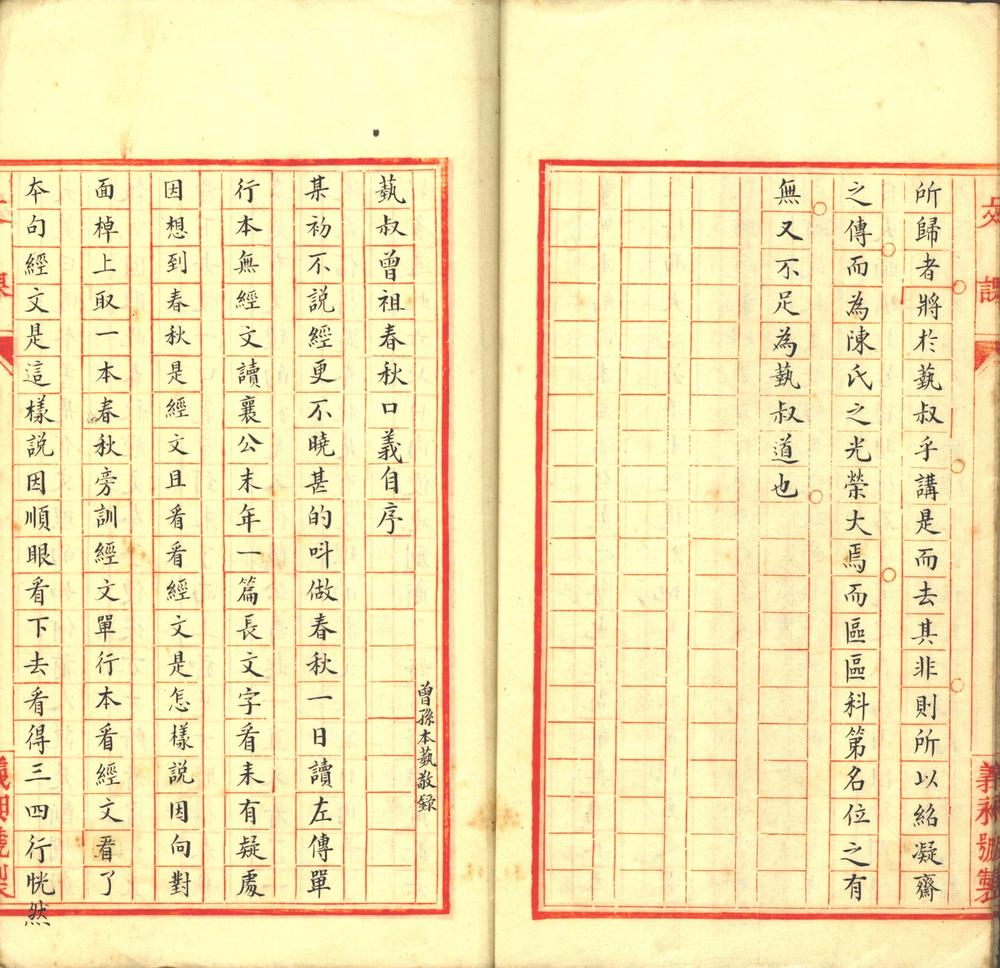 文課
義和號製
所歸者將於蓺叔乎講是而去其非則所以紹凝齋
之傳而為陳氏之光榮大焉而區區科第名位之有
無又不足為蓺叔道也
蓺叔曾祖春秋口義自序
曾孫本蓺敬錄
某初不説經更不曉甚的呌做春秋一日讀左傳單
行本無經文讀襄公末年一篇長文字看来有疑處
因想到春秋是經文且看看經文是怎樣説因向對
面棹上取一本春秋旁訓經文單行本看經文看了
夲句經文是這樣説因順眼看下去看得三四行恍然
義和號製